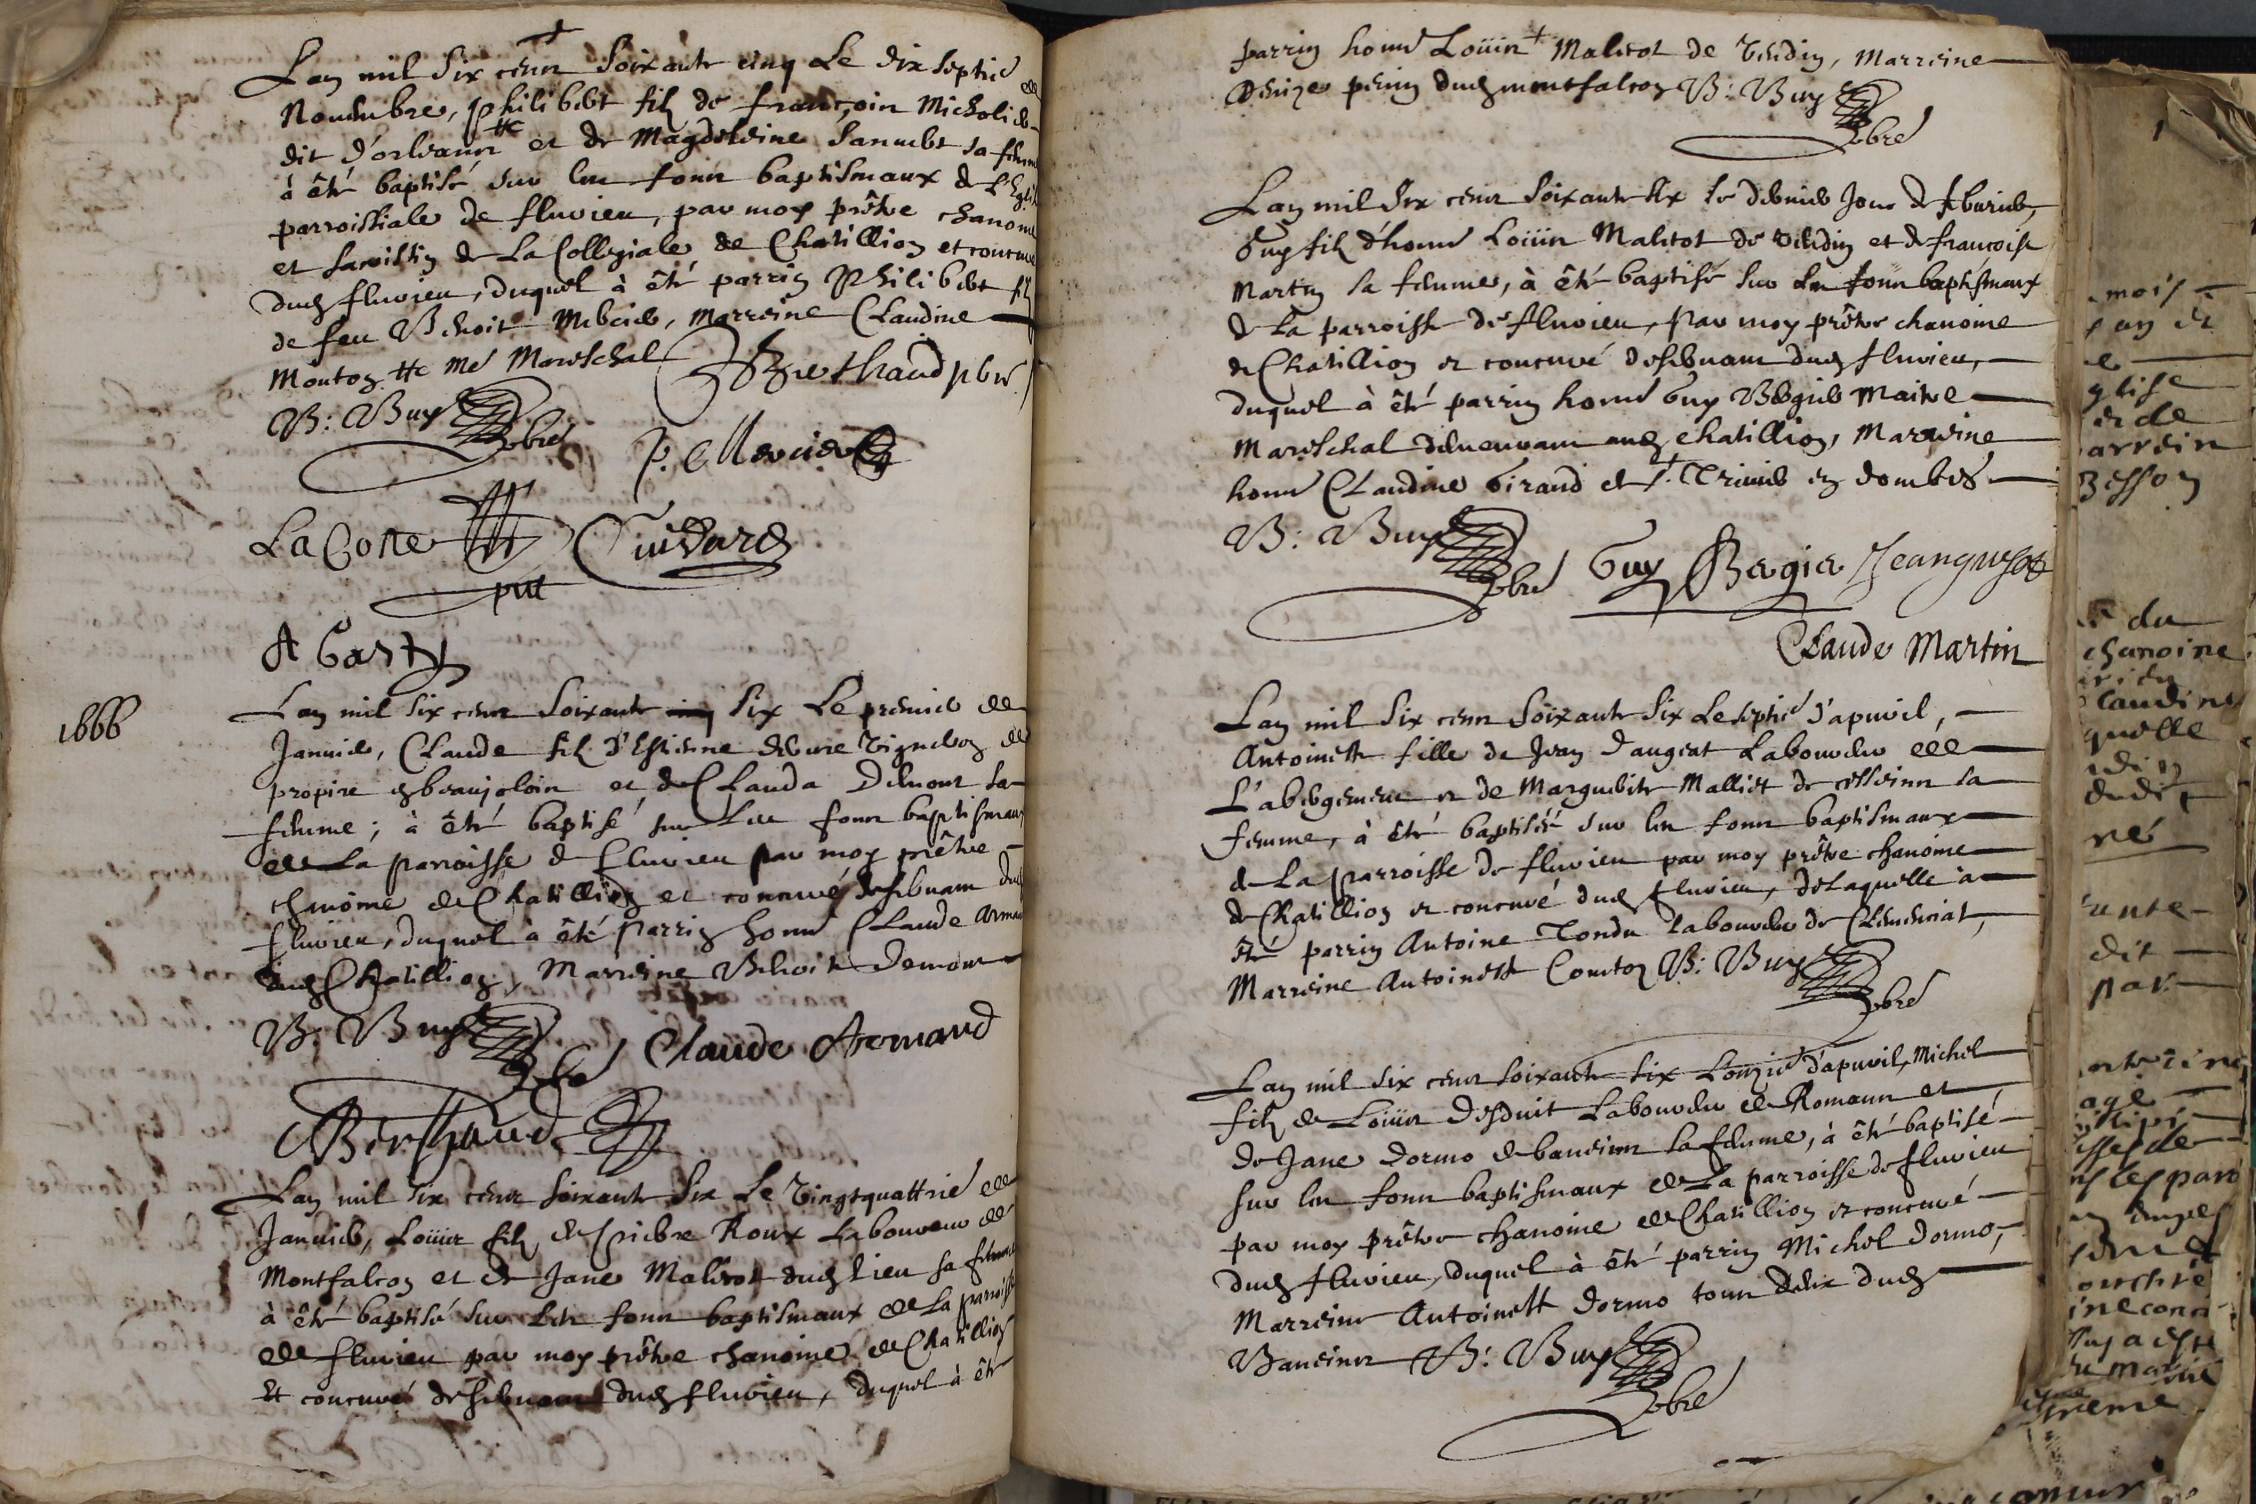 Lan mil six cens soixante cinq Le dix septie de
Nouembre, philibert filz de françois Micholi de
dit d'orleans et de Magdeleine Sanuert sa femme
à êté baptisé sur les fons baptismaux de L'Eglise
parroissiale de fluvieu, par moy prêtre chanoine
et sacristin de La Collegiale de Chatillion et concuré
dud fluvieu, duquel à êté parrin Philibert filz
de feu Benoit Mercier, marreine Claudine
Monton. Me Mareschal Berthaud pbre
B: Buy pbre P. Mercier
La Coste Guichard
pnt
A Garty
1666
Lan mil six cens soixante six Le premier de
Januier, Claude filz d'Estienne vigneron de
propire en beaujolois et de Clauda Demont sa
femme; à êté baptisé sur Les fons baptismaux
de La parroisse de fluvieu par moy prêtre
chanoine de Chatillion et concuré desseruant dud
fluvieu, duquel à êté parrin honne Claude Armand
dud Chatillion, Marreine Benoite Demont
B: Buy pbre Claude Armand
Berthaud
Lan mil six cens soixante six Le vingtquattrie de
Januier, Loüis filz de pierre Roux Laboureur de
Montfalcon et de Jane Malicot dud lieu sa femme
à êté baptisé sur Les fons baptismaux de La parroisse
de fluvieu par moy prêtre chanoine de Chatillion
Et concuré desseruant dud fluvieu, duquel à êté
parrin honne Loüis Malicot de Verdin, Marreine
Denize perin dud montfalcon B: Buy
pbre
Lan mil six cens soixante six le dernier Jour de feburier,
Guy filz d'honne Loüis Malicot de Verdin et de françoise
Martin sa femme, à êté baptisé sur les fons baptismaux
de La parroisse de fluvieu, par moy prêtre chanoine
de Chatillion et concuré desseruant dud fluvieu,
duquel à êté parrin honne Guy Bergier Maitre
Mareschal demeurant aud chatillion, Marreine
honne Claudine Giraud de St. Triuier en dombes
B: Buy pbre Guy Bergier Jeanguyot
Claude Martin
Lan mil six cens soixante six Le septie d'apuril,
Antoinette fille de Jean Daugeat Laboureur de
L'abergement et de Marguerite Malliet de sa
femme, à êté baptisée sur les fons baptismaux
de La parroisse de fluvieu par moy prêtre chanoine
de Chatillion et concuré dud fluvieu, de Laquelle à
êté parrin Antoine Tondu laboureur de Clemenciat,
Marreine Antoinette Comton B: Buy
pbre
Lan mil six cens soixante six L'onzie d'apuril, Michel
filz de Loüis Desduit Laboureur de Romans et
de Jane Dormo de baneins sa femme, à êté baptisé
sur les fons baptismaux de La parroisse de fluvieu
par moy prêtre chanoine de Chatillion et concuré
dud fluvieu, duquel à êté parrin Michel Dormo,
Marreine Antoinette Dormo tous deux dud
Baneins B: Buy
pbre